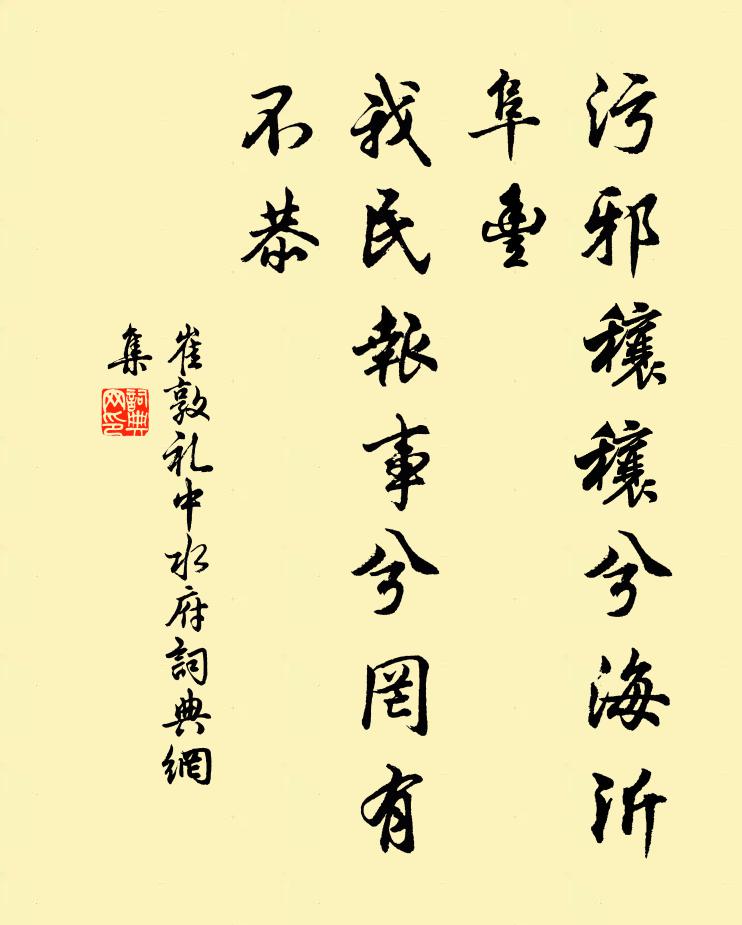 污邪穰穰兮海沂
阜豐
我民報事兮罔有
不恭
崔敦礼中水府詞典網
集
詞典
网印